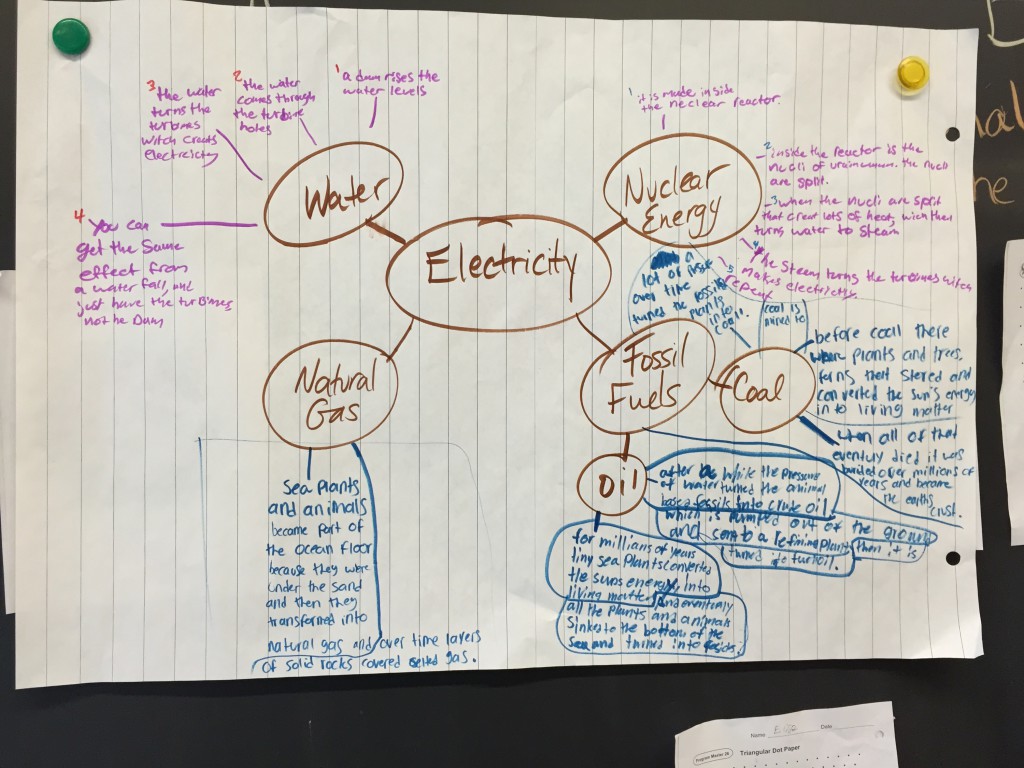 Electricity
Water
1 a dam rises the
water levels
2 the water
comes through
the turbine
holes
3 the water
turns the
turbines
witch creats
electricity
4 You can
get the same
effect from
a water fall, and
just have the turbines
not he Dam
Nuclear
Energy
1 it is made inside
the neclear reactor.
2 inside the reactor is the
nucli of
the nucli
are split.
3 when the nucli are split
that creat lots of heat, wich then
turns water to steam
4 the steam turns the turbines witch
makes electricity.
5 repeat
Fossil
Fuels
Coal
a
lot of
over time
turned the fossil
plants
into
coal.
coal is
mined to
before coall there
where plants and trees,
ferns that stored and
converted the sun's energy
in to living matter
when all of that
eventuly died it was
buried over millions of
years and became
the earths
crust.
Oil
after a while the pressure
of water turned the animal
base fossils into crude oil.
which is pumped out of the ground
and sent to a refining plant
then it is
turned into
for millions of years
tiny sea plants converted
the suns energy, into
living matter, and eventuly
all the plants and animals
sinked to the bottom of the
sea and turned into
Natural
Gas
Sea Plants
and animals
became part of
the ocean floor
because they were
under the sand
and then they
transformed into
natural gas and over time layers
of solid rocks covered gas.
Name
Date
Program Master 26
Triangular Dot Paper